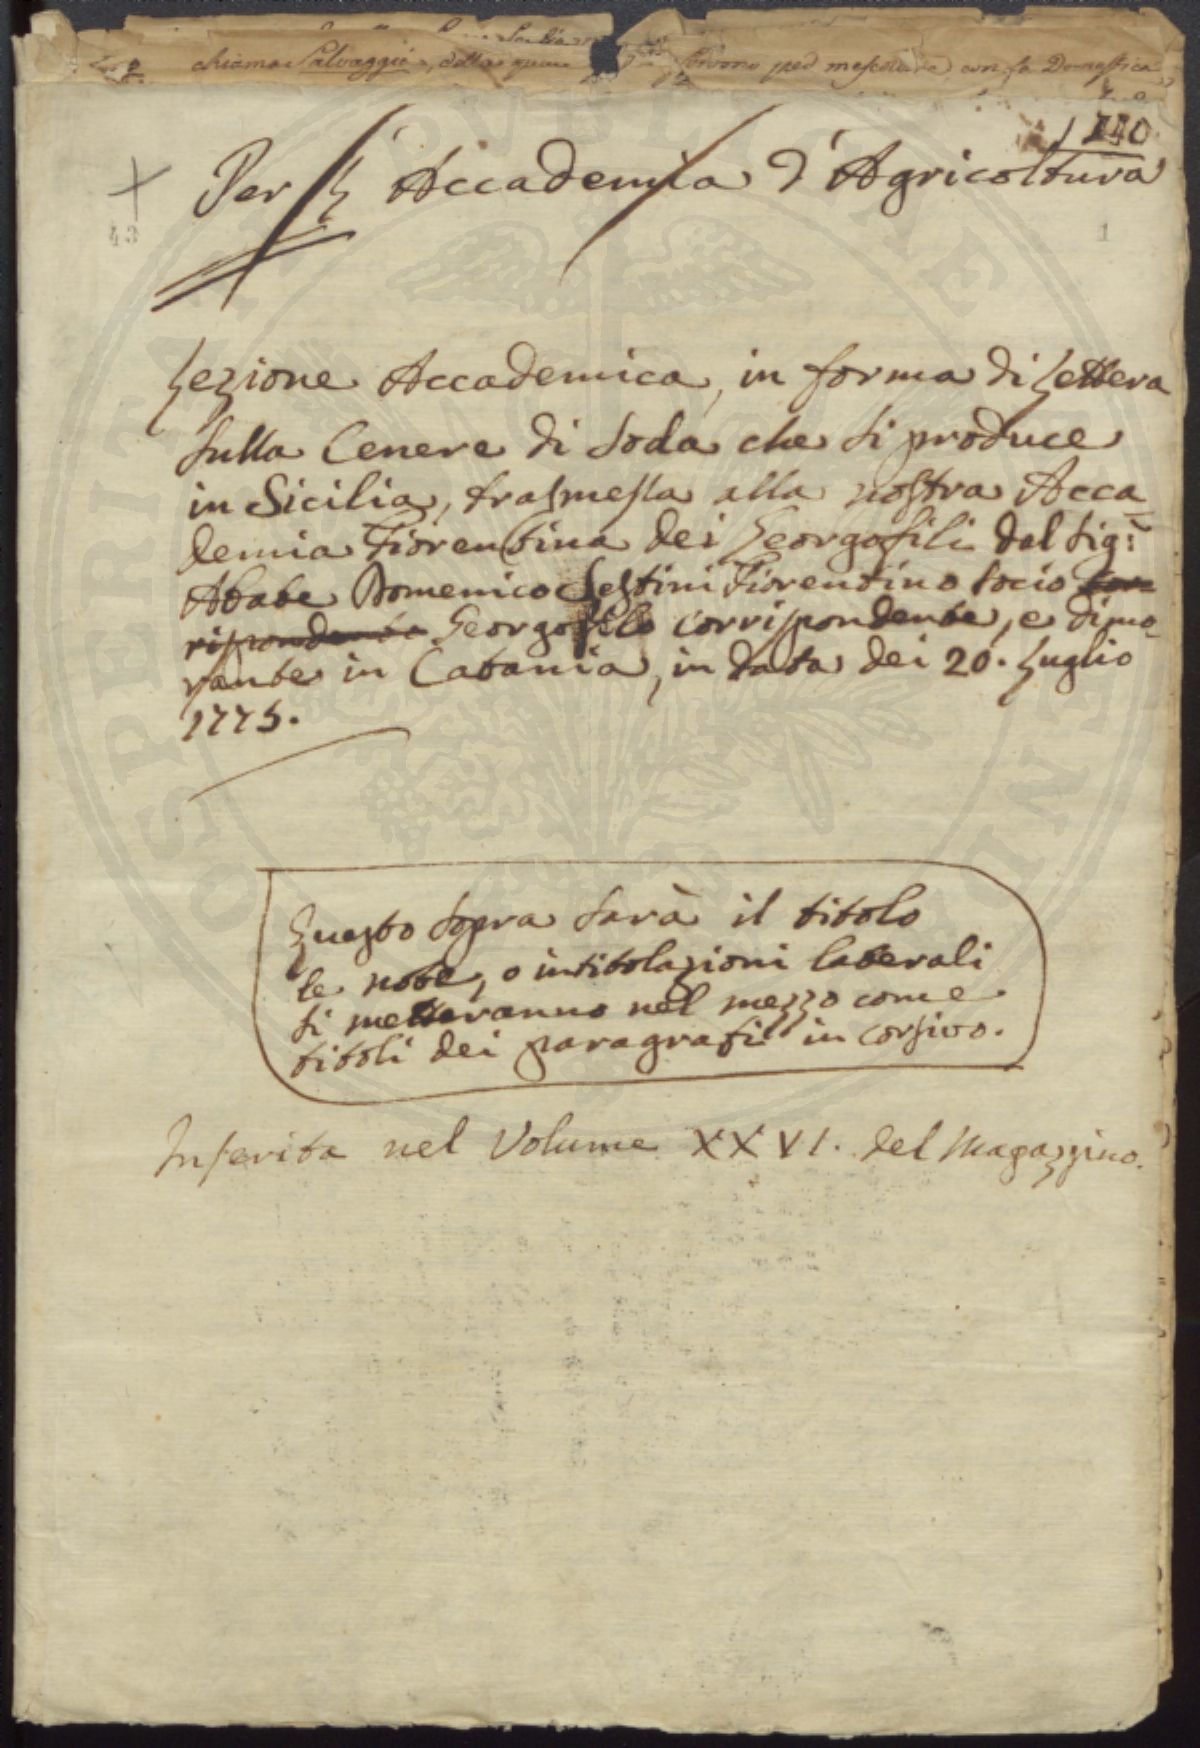 chiama Salvaggia, della quale si servono per mescolarla con la Domestica
140
Per L'Accademia d'Agricoltura
43
1
Lezione Accademica, in forma di Lettera
sulla Cenere di Soda che si produce
in Sicilia, trasmessa alla nostra Acca=
demia Fiorentina dei Georgofili dal Sig:
Abate Domenico Sestini Fiorentino Socio Cor=
rispondente Georgofilo corrispondente, e dimo=
rante in Catania, in data dei 20. Luglio
1775.
Questo sopra sarà il titolo
le note, o intitolazioni laterali
si metteranno nel mezzo come
titoli dei paragrafi in corsivo.
Inserita nel Volume XXVI. del Magazzino.
OSPERITATI PVBLICAE AVGENDAE